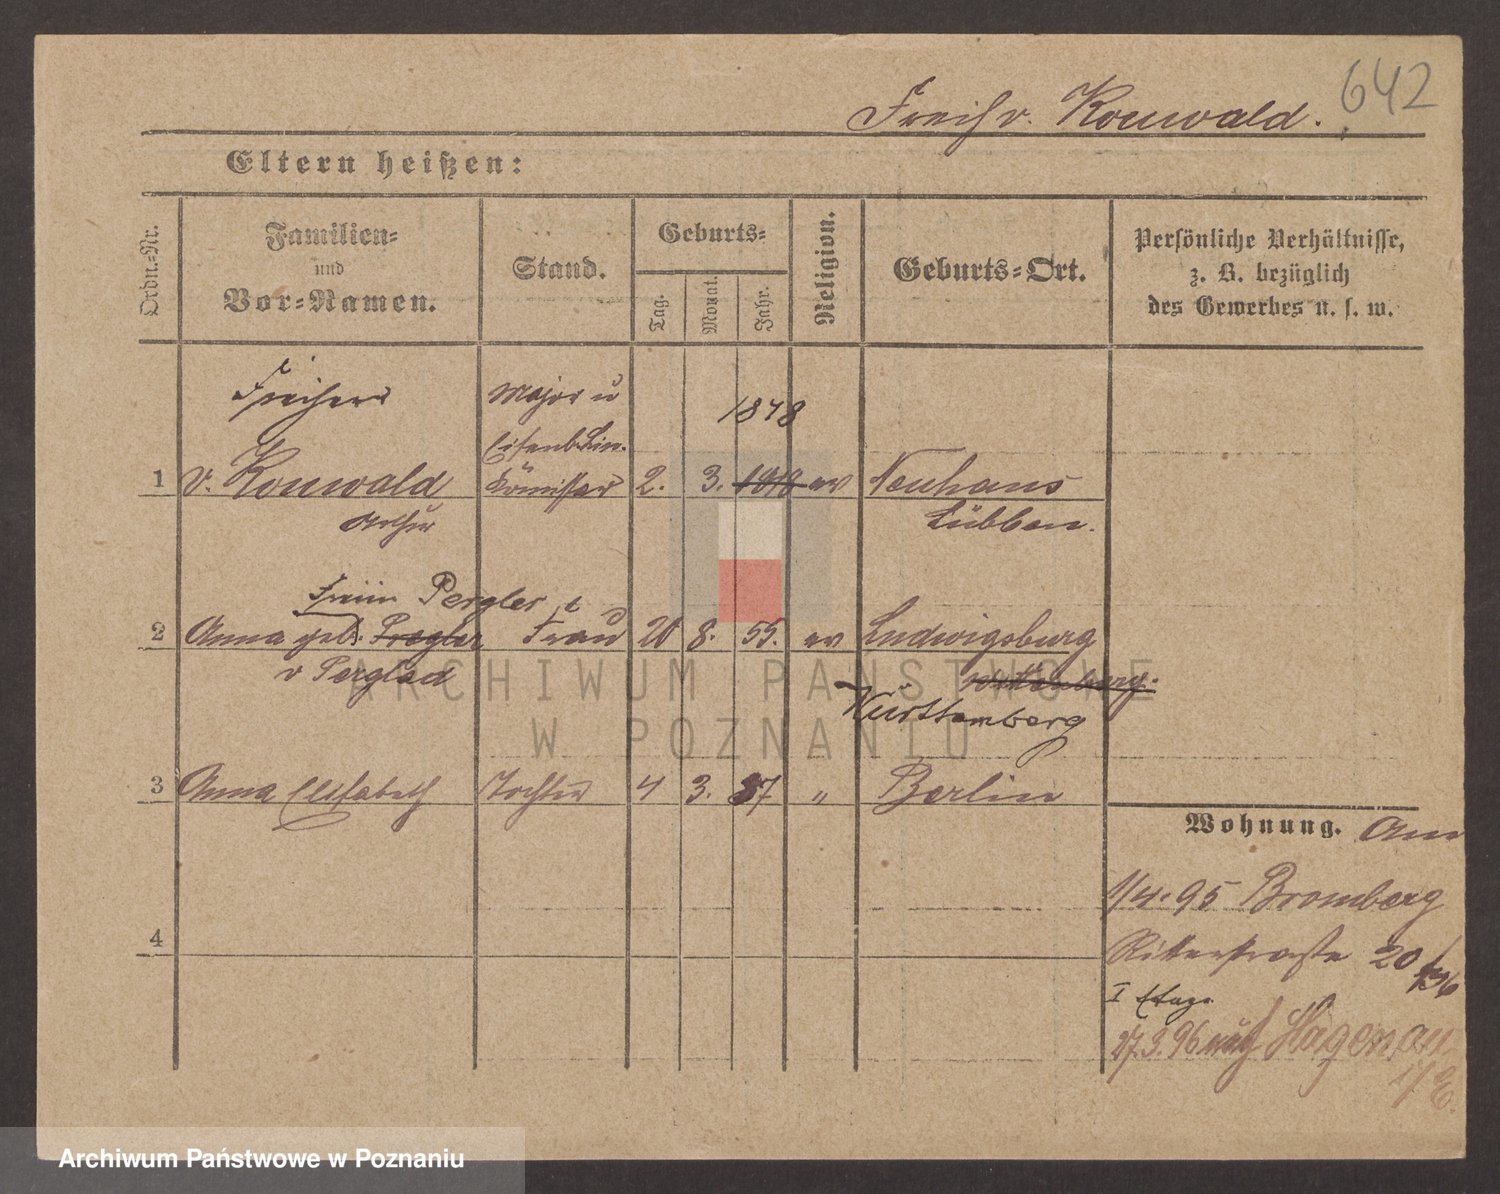 642
Freih v. Houwald.
Eltern heißen:
Ordn.-Nr.
Familien-
und
Vor-Namen.
Stand.
Geburts-
Tag.
Monat.
Jahr.
Religion.
Geburts-Ort.
Persönliche Verhältnisse,
z. B. bezüglich
des Gewerbes u. s. w.
Freiherr Major u 1848
Eisenb. Lin.
1 v. Houwald Komissar 2. 3. 1818 ev Neuhaus
Arthur Lübben.
Freiin Pergler t
2 Anna geb. Pregler Frau 20 8. 55. ev Ludwigsburg
v Perglas
Württemberg
3 Anna Elisabeth Tochter 4 3. 87 " Berlin
Wohnung. Am
1/4. 95 Bromberg
4 Ritterstraße 20
I Etage
27.3.96 nach Hagenau
i/E.
ARCHIWUM PAŃSTWOWE
W POZNANIU
Archiwum Państwowe w Poznaniu